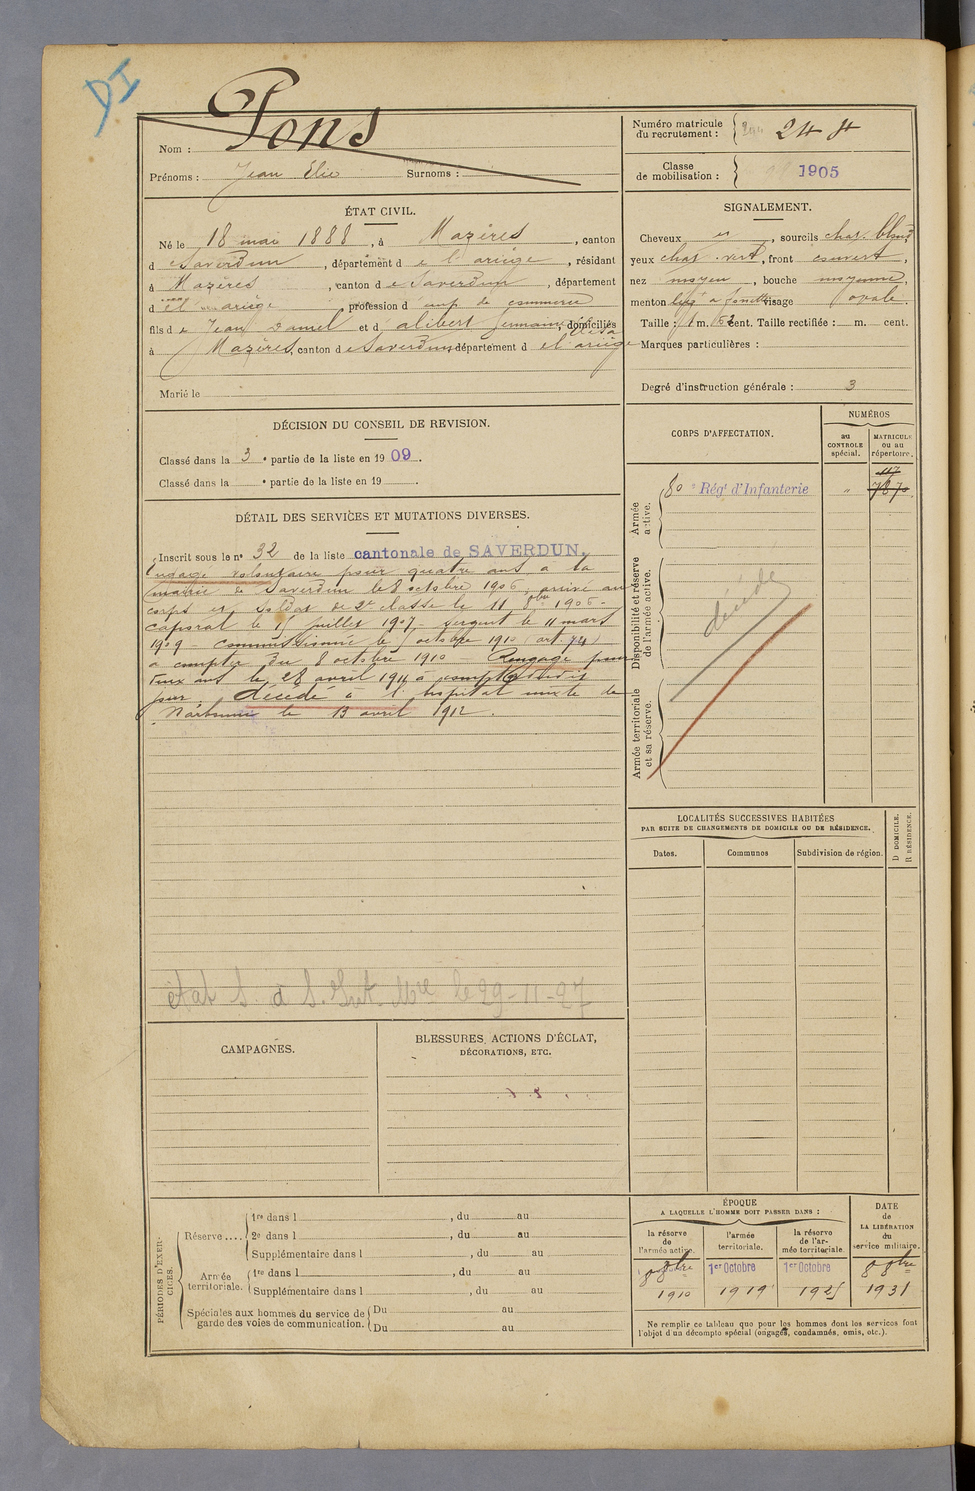 DI
Nom : Pons
Prénoms : Jean Elie Surnoms :
Numéro matricule du recrutement : 244
Classe de mobilisation : 1905
ÉTAT CIVIL.
Né le 18 mai 1888, à Mazères, canton
d e Saverdun, département d e l'ariège, résidant
à Mazères, canton d e Saverdun, département
d e l'ariège, profession d emp. de commerce
fils d e Jean Daniel et d alibert Germaine, domiciliés
à Mazères, canton d e Saverdun, département d e l'ariège
Marié le
SIGNALEMENT.
Cheveux , sourcils chat. blond,
yeux chat. vert, front couvert,
nez moyen, bouche moyenne,
menton à fossette visage ovale.
Taille : 1 m. 62 cent. Taille rectifiée : m. cent.
Marques particulières :
Degré d'instruction générale : 3
DÉCISION DU CONSEIL DE REVISION.
Classé dans la 3e partie de la liste en 1909.
Classé dans la e partie de la liste en 19 .
DÉTAIL DES SERVICES ET MUTATIONS DIVERSES.
Inscrit sous le no 32 de la liste cantonale de SAVERDUN.
Engagé volontaire pour quatre ans à la
mairie de Saverdun le 8 octobre 1906, arrivé au
corps et soldat de 2e classe le 11 8bre 1906 -
caporal le 15 juillet 1907 - sergent le 11 mars
1909 - commissionné le octobre 1910 (art. 74)
à compter du 8 octobre 1910 Rengagé pour
deux ans le 28 avril 1911 à compter dudit
jour décédé à l'hopital mixte de
Narbonne le 13 avril 1912.
état S. à le 29-11-27
CORPS D'AFFECTATION.
NUMÉROS
au CONTROLE spécial.
MATRICULE ou au répertoire.
Armée active.
80e Régt d'Infanterie " 117 7870
Disponibilité et réserve de l'armée active.
décédé
Armée territoriale et sa réserve.
LOCALITÉS SUCCESSIVES HABITÉES
PAR SUITE DE CHANGEMENTS DE DOMICILE OU DE RÉSIDENCE.
D DOMICILE.
R RÉSIDENCE.
Dates. Communes Subdivision de région.
CAMPAGNES.
BLESSURES, ACTIONS D'ÉCLAT,
DÉCORATIONS, ETC.
PÉRIODES D'EXERCICES.
Réserve .... 1re dans l , du au
2e dans l , du au
Supplémentaire dans l , du au
Armée territoriale. 1re dans l , du au
Supplémentaire dans l , du au
Spéciales aux hommes du service de garde des voies de communication. Du au
Du au
ÉPOQUE
A LAQUELLE L'HOMME DOIT PASSER DANS :
la réserve de l'armée active.
l'armée territoriale.
la réserve de l'armée territoriale
DATE de LA LIBÉRATION du service militaire.
8 8bre 1er Octobre 1er Octobre 8 8bre
1910 1919 1925 1931
Ne remplir ce tableau que pour les hommes dont les services font
l'objet d'un décompte spécial (engagés, condamnés, omis, etc.).